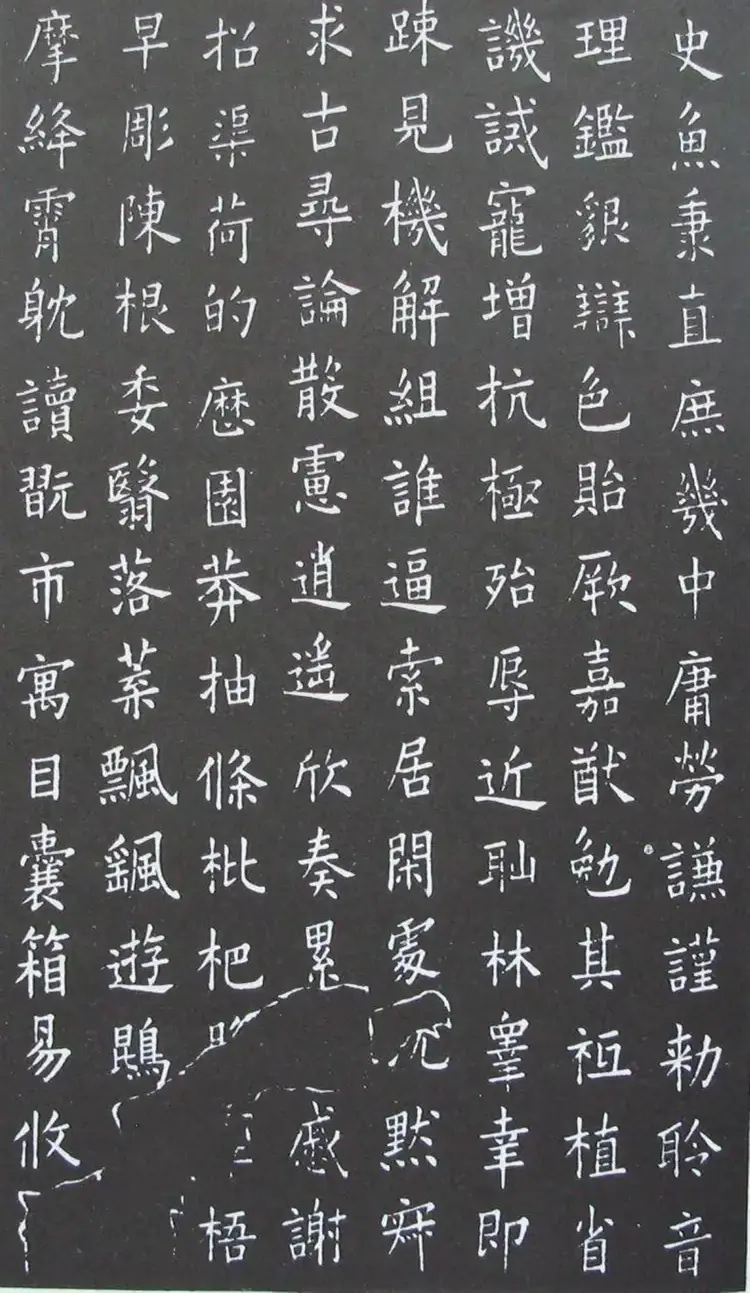 史魚秉直庶幾中庸勞謙謹勑聆音
理鑑貌辯色貽厥嘉猷勉其祗植省
譏誡寵增抗極殆辱近耻林睾幸即
踈見機解組誰逼索居閑處沉默寂
求古尋論散慮逍遥欣奏累慼謝
招渠荷的歷園莽抽條枇杷梧
早彫陳根委翳落葉飄颻遊鵾
摩絳霄躭讀翫市寓目囊箱易攸